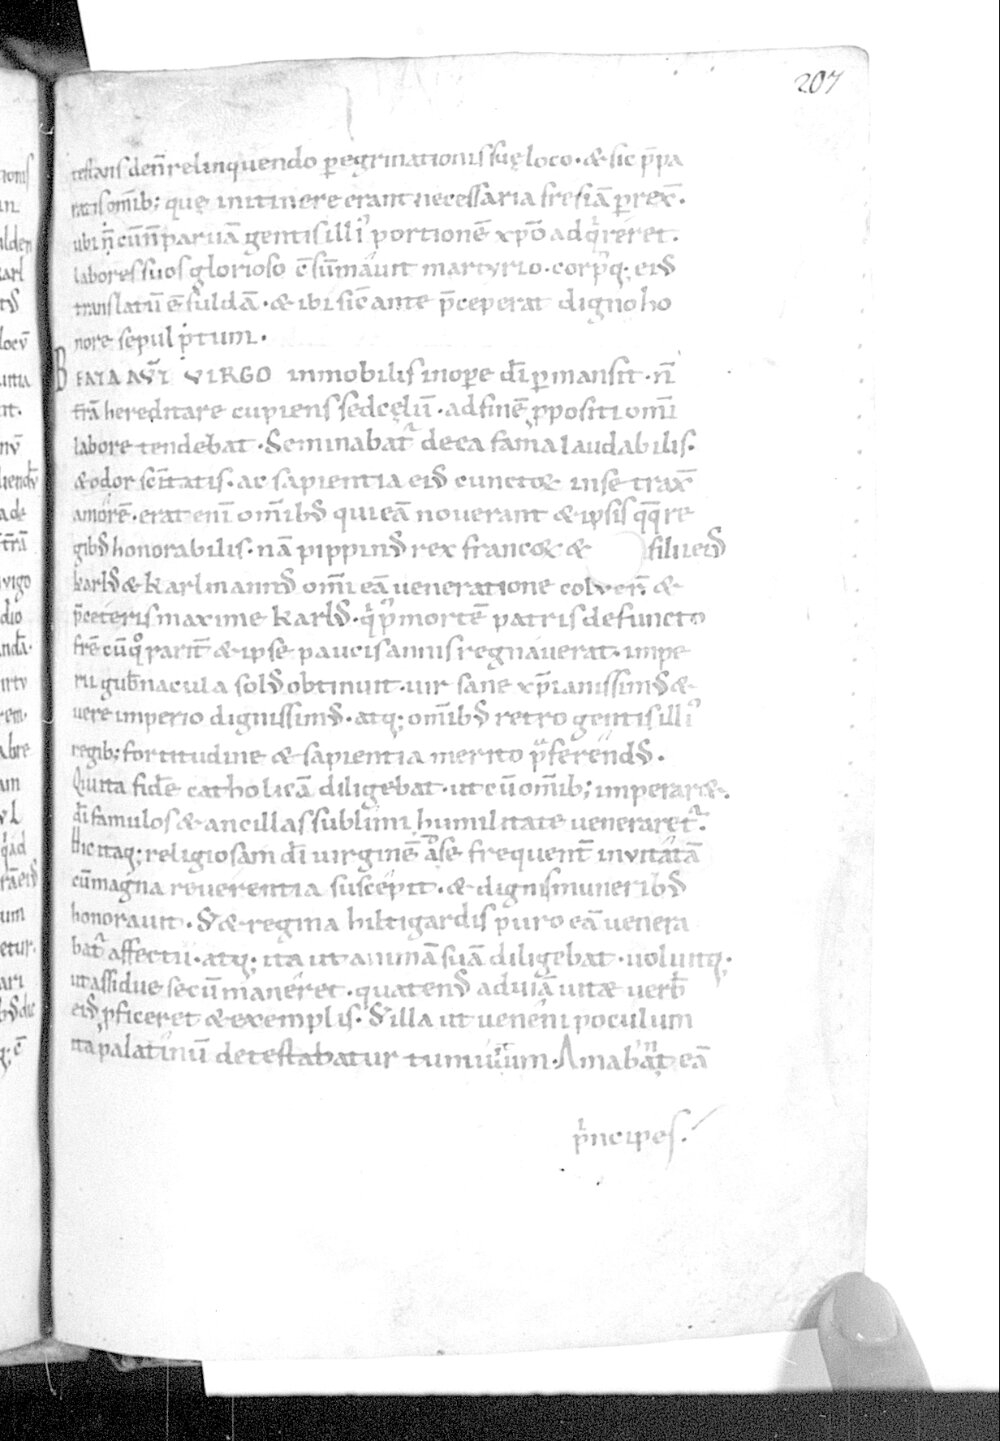 207
testans den̄ relinquendo peregrinationis suę loco. & sic p̄pa
ratis omīb; quę in itinere erant necessaria fresiā prex̄.
ubi n̄ cū n̄ paruā gentis illi᾽ portionē xp̄o adq͛reret.
labores suos glorioso c̄sūmauit martyrio. corp᾽q; ei᾽
translatū ē fuldā. & ibi sic̄ ante p̄ceperat digno ho
nore sepulptum.
BEATA AŪT VIRGO inmobilis in opere dī permansit. n̄
t̄rā hereditare cupiens sed cęlū. ad finē ꝓpositi omī
labore tendebat. Seminabat᷑ de ea fama laudabilis.
& odor sc̄itatis. ac sapientia ei᾽ cunctoꝝ in se trax̄
amorē. erat enī omīb᾽ qui eā nouerant & ipsis qq̄ re
gib᾽ honorabilis. nā pippin᾽ rex francoꝝ & filii ei᾽
karl᾽ & karlmann᾽ omī eā ueneratione coluer̄. &
p̄ceteris maxime karl᾽. q͛ p᾽ mortē patris defuncto
fr̄e cū quo parit̄ & ipse paucis annis regnauerat. impe
rii gub̄nacula sol᾽ obtinuit. uir sane xp̄ianissim᾽ &
uere imperio dignissim᾽. atq; omīb᾽ retro gentis illi᾽
regib; fortitudine & sapientia merito p̄ferend᾽.
Qui ita fidē catholicā diligebat. ut cū omīb; imperar&.
dī famulos & ancillas sublimi humilitate ueneraret᷑.
Hic itaq; religiosam dī uirginē a se frequent̄ inuitatā
cū magna reuerentia suscepit. & dignis munerib᾽
honorauit. S; & regina hiltigardis puro eā uenera
bat᷑ affectu. atq; ita ut animā suā diligebat. uoluitq;
ut assidue secū maneret. quaten᾽ ad uiā uitæ uerb̄
ei᾽ ꝓficeret & exemplis. S; illa ut ueneni poculum
ita palatinū detestabatur tumultum. Amabant eā
p͛ncipes.